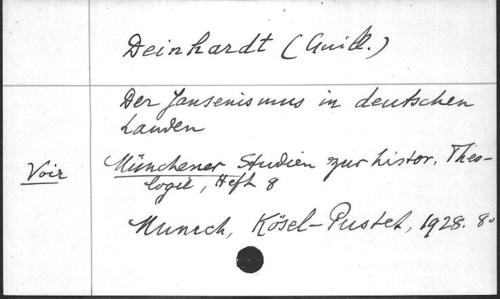 Deinhardt (Guill.)
Der Jansenismus in deutschen
Landen
Voir
Münchener Studien zur histor. Theo-
logie, Heft 8
Munich, Kösel-Pustet, 1928. 8º